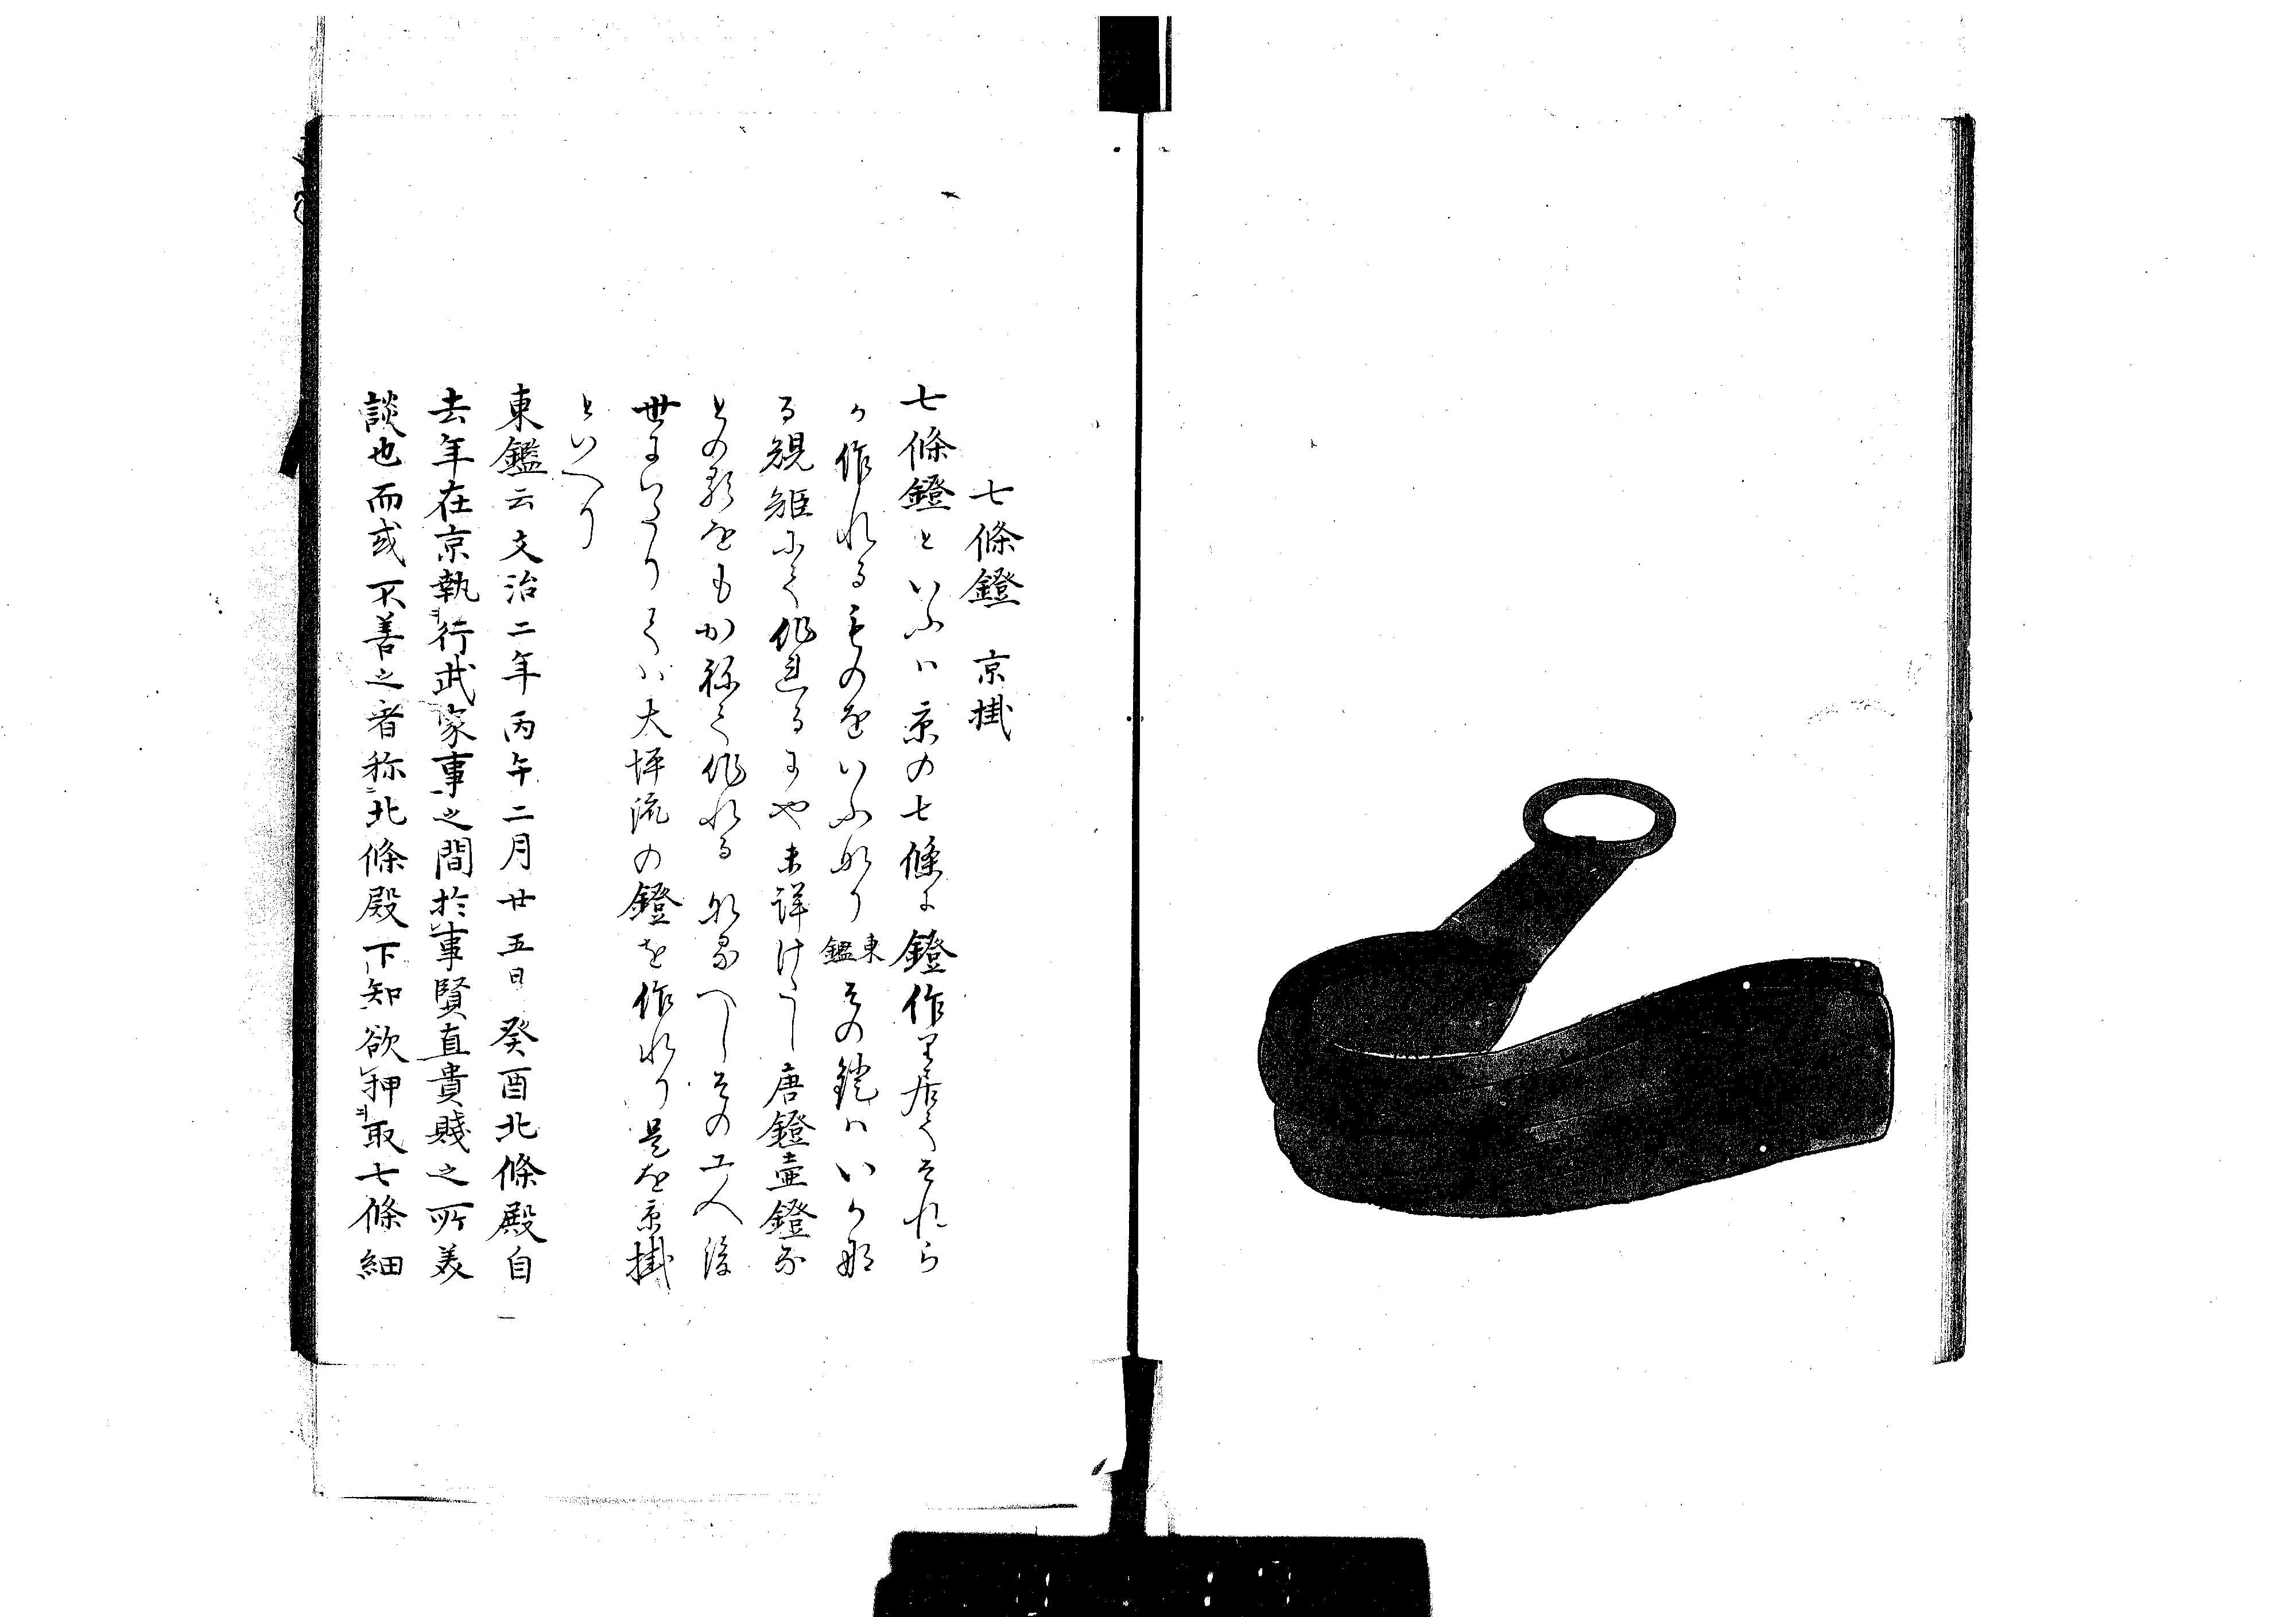 七條鐙　京掛
七條鐙といふハ京の七條に鐙作り居てそれら
か作れるものをいふなり東鑑その鐙ハいかな
る規矩にて作れるにや未詳けたし唐鐙壷鐙な
との形をもかねて作れるなるへしその工人後
世にいたりてハ大坪流の鐙を作れり是を京掛
といへり
東鑑云文治二年丙午二月廿五日癸酉北條殿自
去年在京執行武家事之間於事賢直貴賤之所美
談也而或不善之者称北條殿下知欲押取七條細